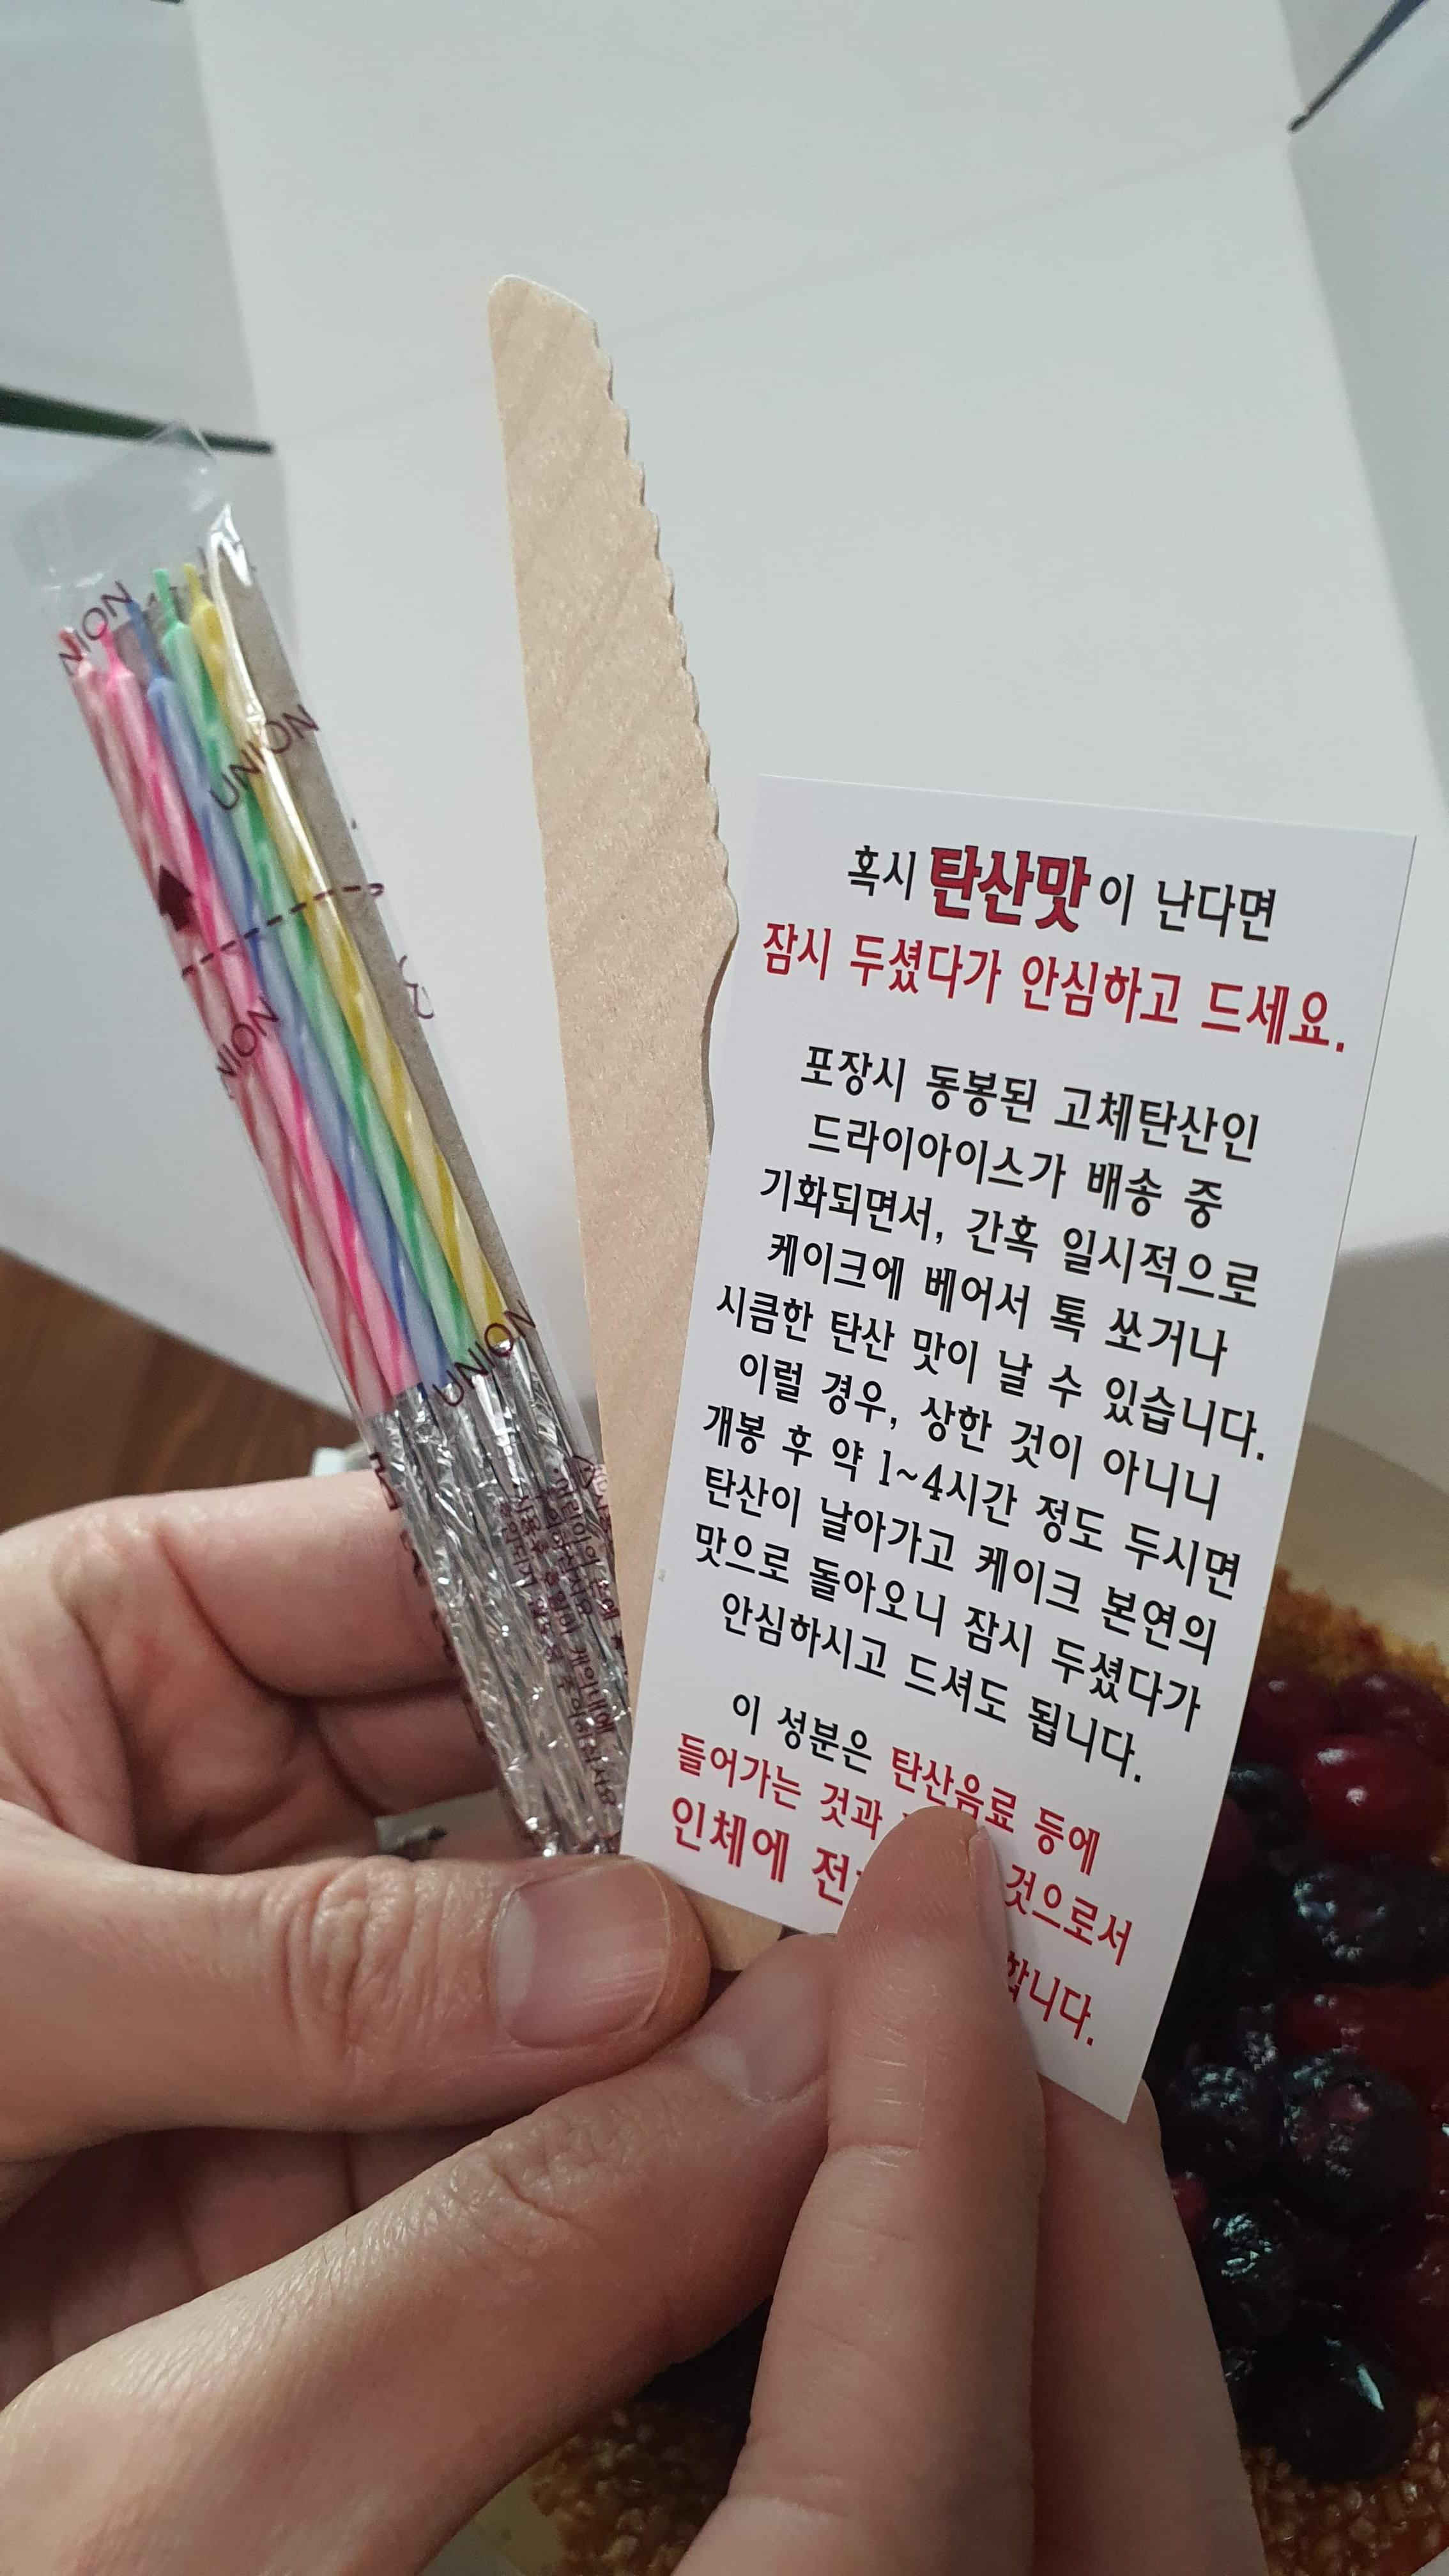 UNION
UNION
UNION
혹시 탄산맛이 난다면
잠시 두셨다가 안심하고 드세요.
포장시 동봉된 고체탄산인
드라이아이스가 배송 중
기화되면서, 간혹 일시적으로
케이크에 베어서 톡 쏘거나
시큼한 탄산 맛이 날 수 있습니다.
이럴 경우, 상한 것이 아니니
개봉 후 약 1~4시간 정도 두시면
탄산이 날아가고 케이크 본연의
맛으로 돌아오니 잠시 두셨다가
안심하시고 드셔도 됩니다.
이 성분은 탄산음료 등에
들어가는 것과 것으로서
인체에